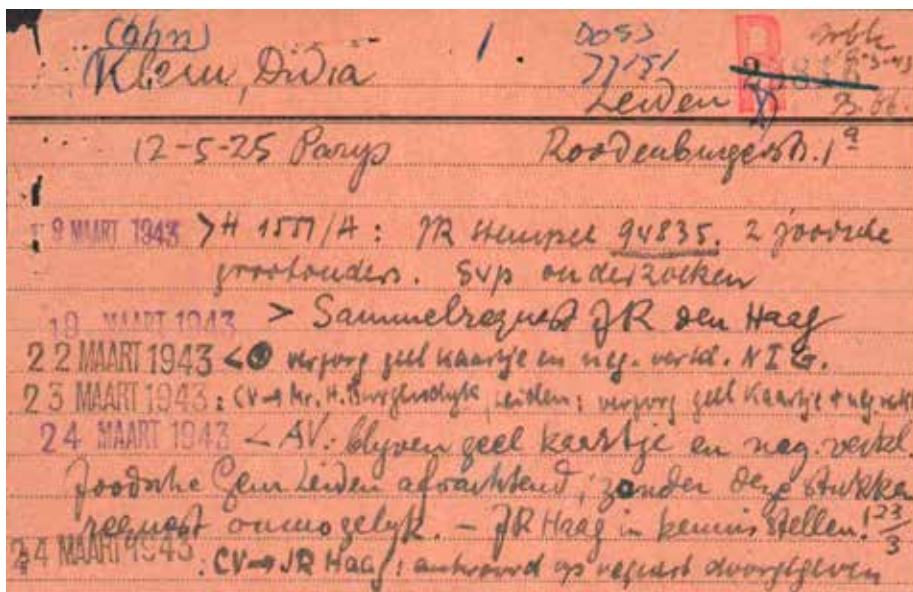 (Cohn) 1. DOSS
Klein, Didia 77151
Leiden
12-5-25 Parys Roodenburgerstr. 1a
9 MAART 1943 > H 1557/A : JR Hempel 94835. 2 joodsche
grootouders. Svp onderzoeken
19 MAART 1943 > Sammelrequest JR den Haag
22 MAART 1943 < verzorg geel kaartje en neg. verkl. N I G.
23 MAART 1943 : CV → Mr. H. Burgersdyk, Leiden : verzorg geel kaartje + neg. verkl
24 MAART 1943 < AV : blyven geel kaartje en neg. verkl.
Joodsche Gem Leiden afwachtend, zonder deze stukken
request onmogelyk. – JR Haag in kennis stellen. 23/3
24 MAART 1943 : CV → JR Haag : antwoord op request doorgegeven